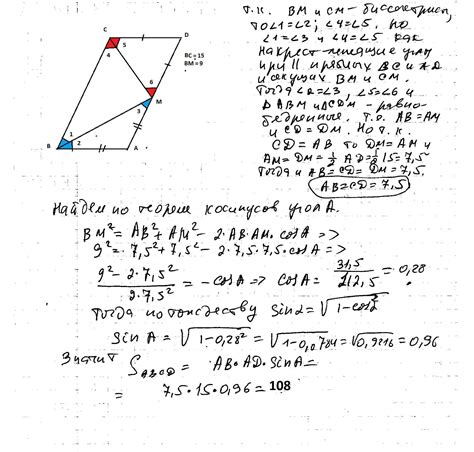 C
D
5
4
BC=15
BM=9
6
M
3
1
2
B
A
Т.к. BM и CM - биссектрисы,
то ∠1=∠2; ∠4=∠5. Но
∠1=∠3 и ∠4=∠5 как
накрест-лежащие углы
при II прямых BC и AD
и секущих BM и CM.
Тогда ∠2=∠3, ∠5=∠6 и
ΔABM и ΔCDM - равно-
бедренные. Т.о. AB=AM
и CD=DM. Но т.к.
CD=AB то DM=AM и
AM=DM=1/2 AD=1/2 15=7,5
Тогда и AB=CD=DM=7,5.
AB=CD=7,5
Найдем по теореме косинусов угол A.
BM²=AB²+AM²-2·AB·AM·cosA=>
9²=7,5²+7,5²-2·7,5·7,5·cosA=>
(9²-2·7,5²)/(2·7,5²)=-cosA=> cosA=31,5/112,5=0,28
Тогда по тождеству sinα=√(1-cos²)
sinA=√(1-0,28²)=√(1-0,0784)=√0,9216=0,96
Значит S ABCD = AB·AD·sinA=
=7,5·15·0,96=108